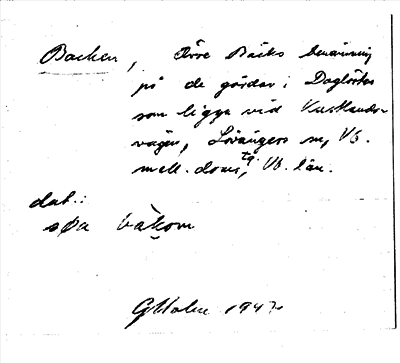 Backen, Övre Bäcks benämning
på de gårdar i Daglösten
som ligga vid Kustlands-
vägen, Lövångers sn, Vb.
mell. doms. tg, Vb. län.
dat.:
spa bakom
G Holm 1947